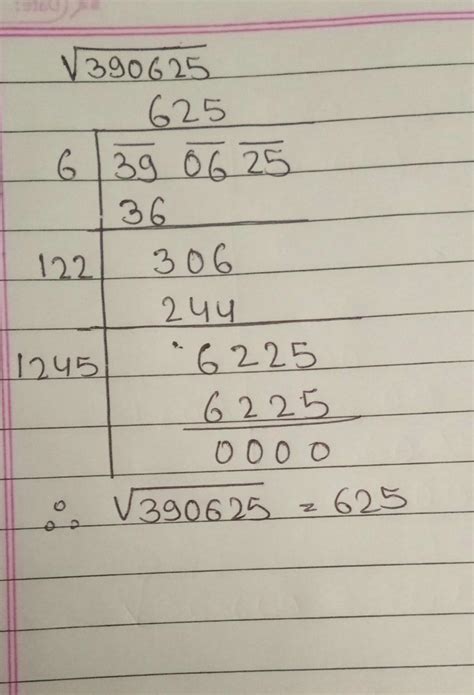 √390625
625
6 39 06 25
36
122 306
244
1245 6225
6225
0000
∴ √390625 = 625